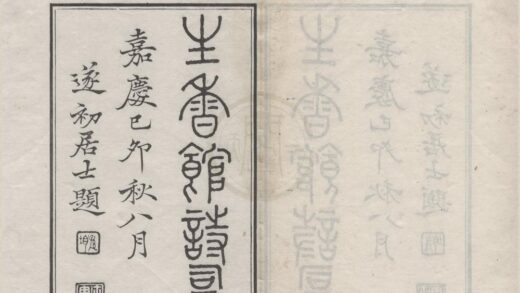 生香館詩
嘉慶己卯秋八月
遂初居士題